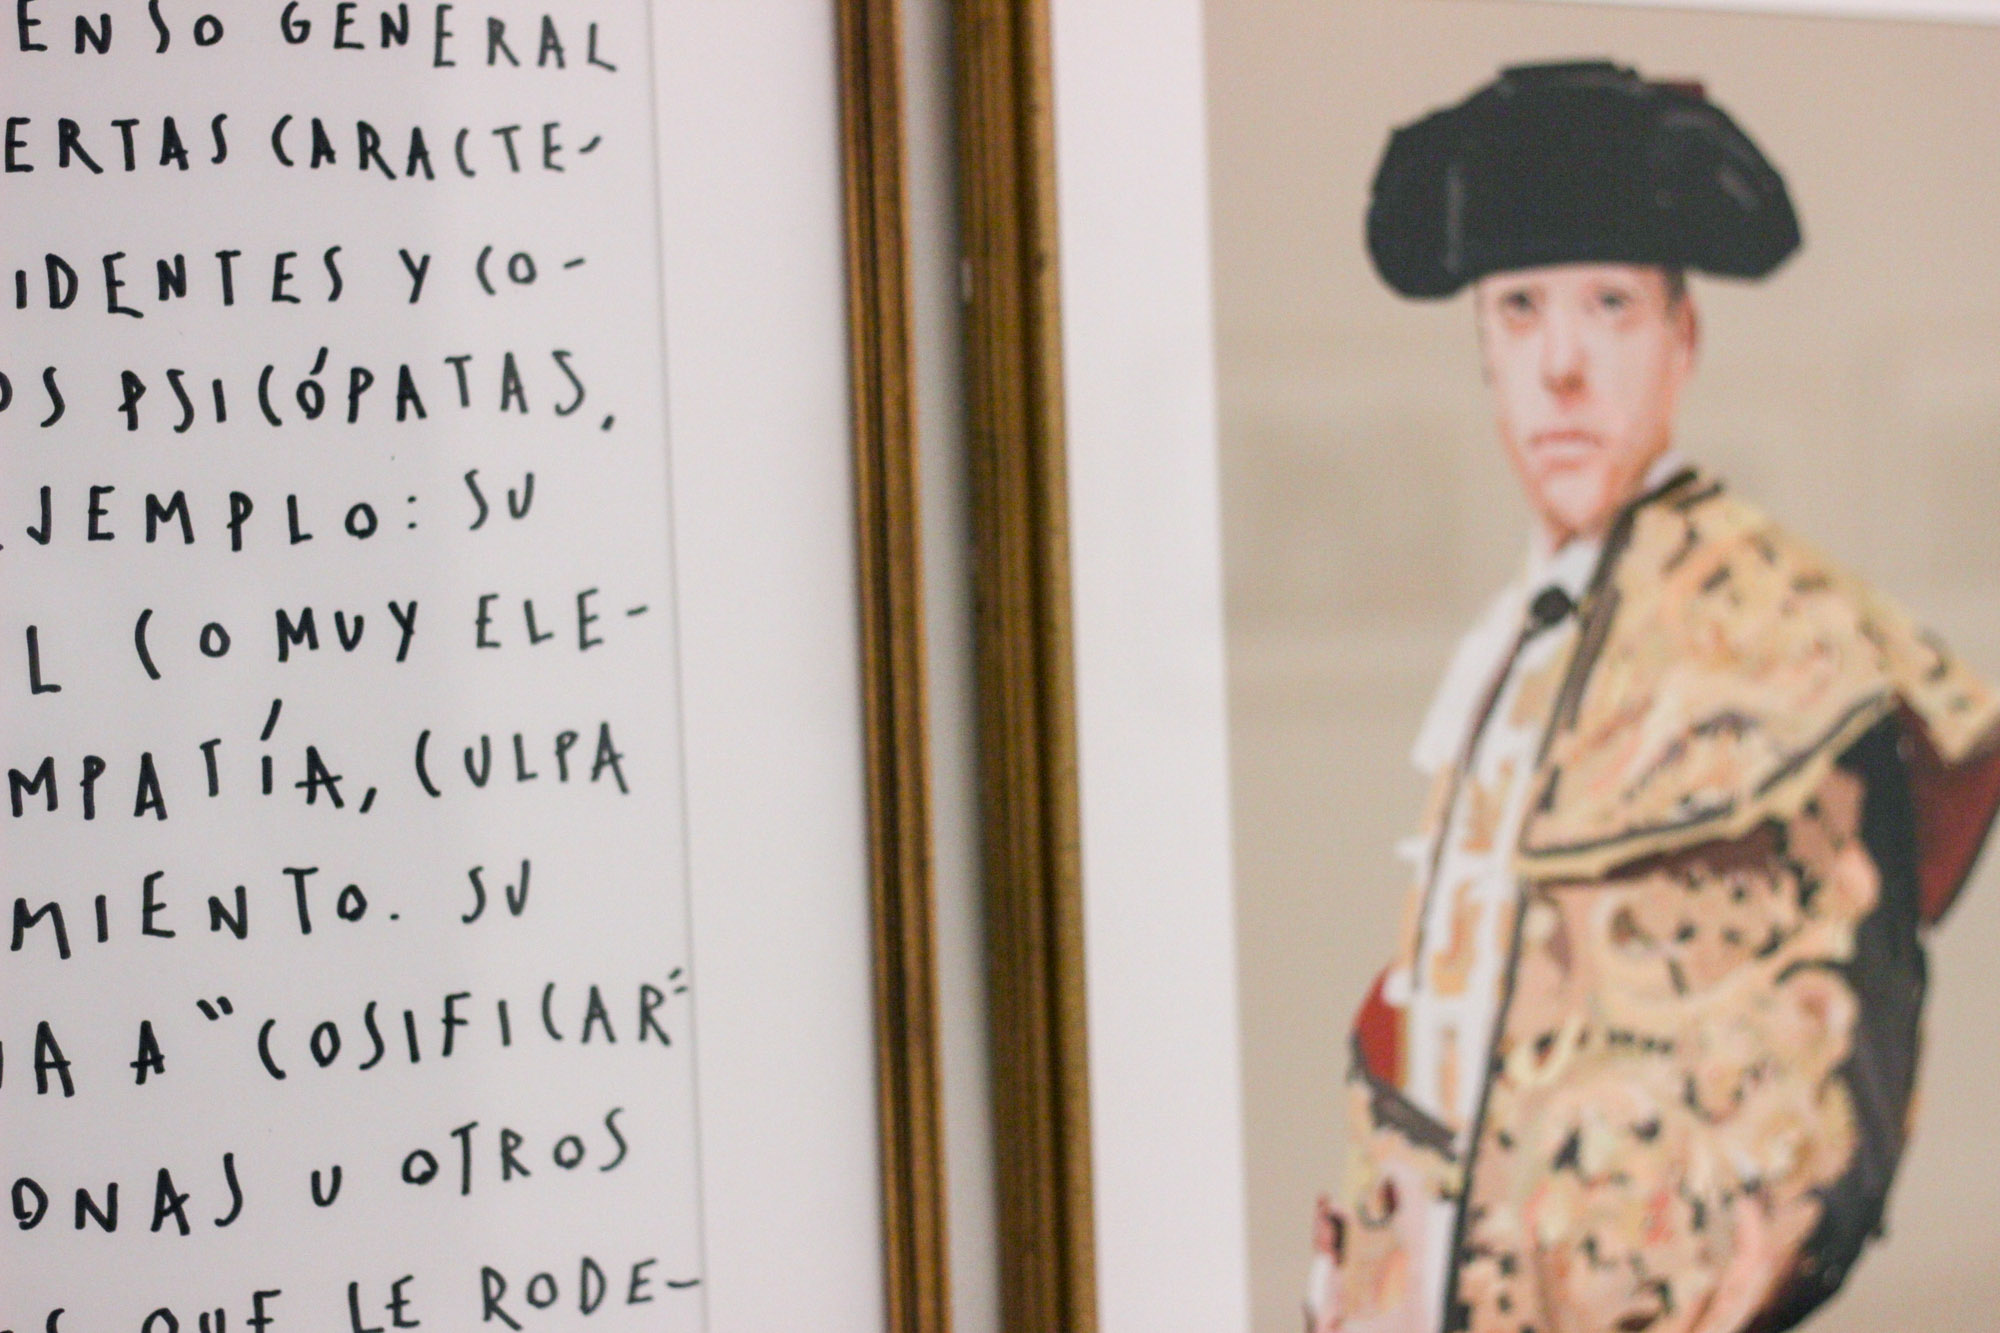 ENSO GENERAL
ERTAS CARACTE-
IDENTES Y CO-
OS PSICÓPATAS,
EJEMPLO: SU
L COMUY ELE-
MPATÍA, CULPA
MIENTO. SU
UA A "COSIFICAR"
ONAS U OTROS
S QUE LE RODE-